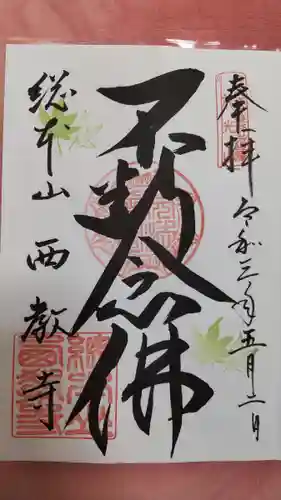 奉拝
令和三年五月二日
不断念佛
総本山西教寺